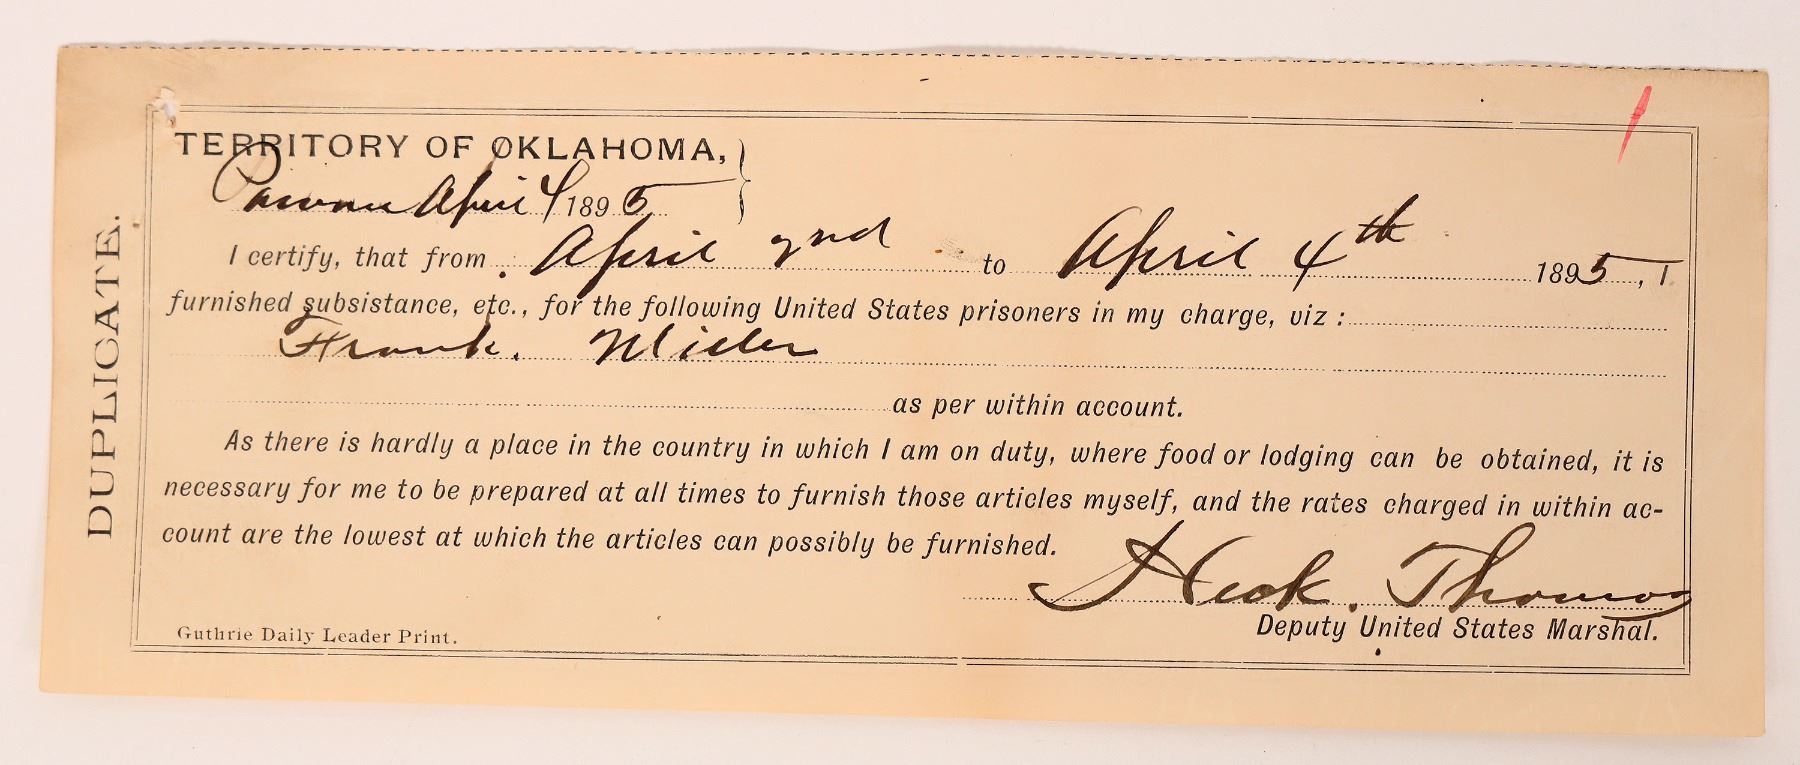 DUPLICATE.
TERRITORY OF OKLAHOMA,
Pawnee April 4 1895
I certify, that from April 2nd to April 4th 1895, I
furnished subsistance, etc., for the following United States prisoners in my charge, viz :
Frank. Miller
as per within account.
As there is hardly a place in the country in which I am on duty, where food or lodging can be obtained, it is
necessary for me to be prepared at all times to furnish those articles myself, and the rates charged in within ac-
count are the lowest at which the articles can possibly be furnished.
Heck. Thomas
Deputy United States Marshal.
Guthrie Daily Leader Print.